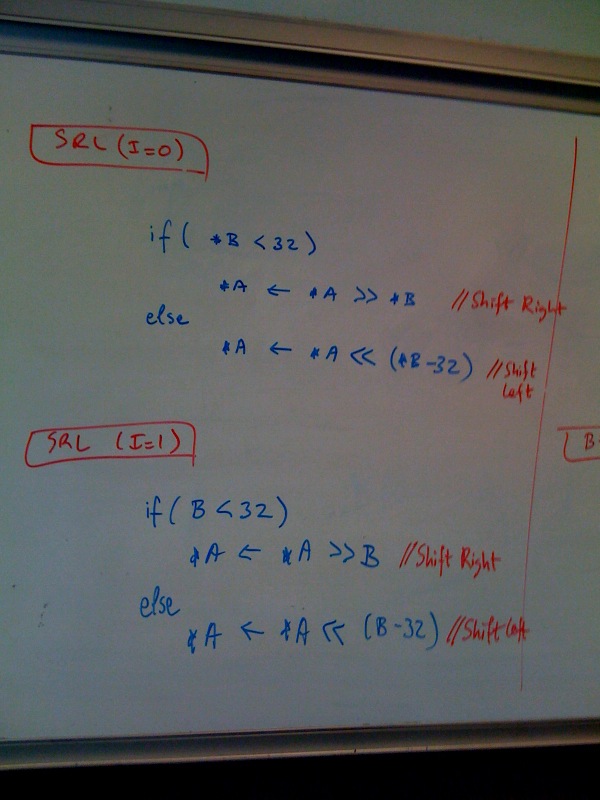 SRL (I=0)
if( *B < 32)
*A ← *A >> *B //Shift Right
else
*A ← *A << (*B-32) //Shift
Left
SRL (I=1)
B
if( B < 32)
*A ← *A >> B //Shift Right
else
*A ← *A << (B-32) //Shift Left